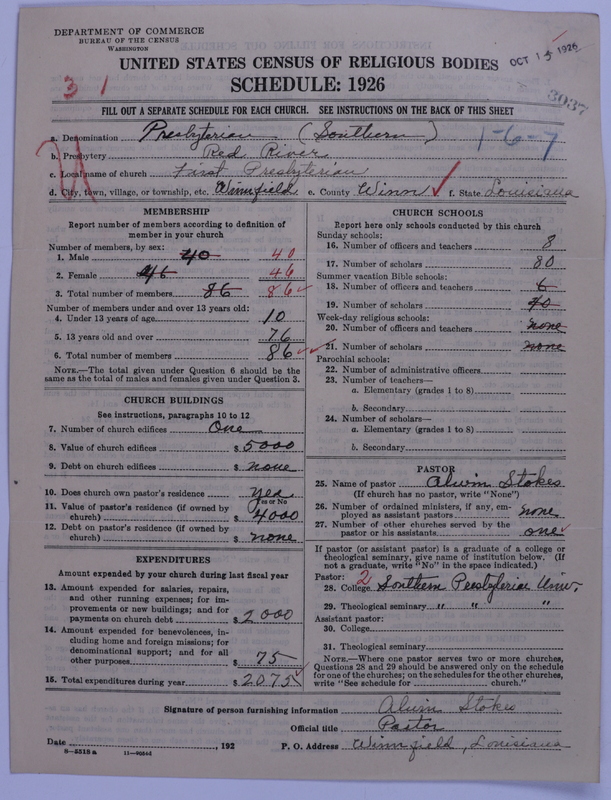 DEPARTMENT OF COMMERCE
BUREAU OF THE CENSUS
WASHINGTON
UNITED STATES CENSUS OF RELIGIOUS BODIES
OCT 15 1926
SCHEDULE: 1926
3 1
3037
FILL OUT A SEPARATE SCHEDULE FOR EACH CHURCH. SEE INSTRUCTIONS ON THE BACK OF THIS SHEET
a. Denomination Presbyterian (Southern)
1-6-7
b. Presbytery Red River
c. Local name of church First Presbyterian
d. City, town, village, or township, etc. Winnfield e. County Winn f. State Louisiana
MEMBERSHIP
Report number of members according to definition of member in your church
Number of members, by sex:
1. Male 40 40
2. Female 46 46
3. Total number of members 86 86
Number of members under and over 13 years old:
4. Under 13 years of age 10
5. 13 years old and over 76
6. Total number of members 86
NOTE.—The total given under Question 6 should be the same as the total of males and females given under Question 3.
CHURCH BUILDINGS
See instructions, paragraphs 10 to 12
7. Number of church edifices One
8. Value of church edifices $ 5000
9. Debt on church edifices $ none
10. Does church own pastor's residence yes
Yes or No
11. Value of pastor's residence (if owned by church) $ 4000
12. Debt on pastor's residence (if owned by church) $ none
EXPENDITURES
Amount expended by your church during last fiscal year
13. Amount expended for salaries, repairs, and other running expenses; for improvements or new buildings; and for payments on church debt $ 2000
14. Amount expended for benevolences, including home and foreign missions; for denominational support; and for all other purposes $ 75
15. Total expenditures during year $ 2075
CHURCH SCHOOLS
Report here only schools conducted by this church
Sunday schools:
16. Number of officers and teachers 8
17. Number of scholars 80
Summer vacation Bible schools:
18. Number of officers and teachers 6
19. Number of scholars 40
Week-day religious schools:
20. Number of officers and teachers none
21. Number of scholars none
Parochial schools:
22. Number of administrative officers
23. Number of teachers—
a. Elementary (grades 1 to 8)
b. Secondary
24. Number of scholars—
a. Elementary (grades 1 to 8)
b. Secondary
PASTOR
25. Name of pastor Alwin Stokes
(If church has no pastor, write "None")
26. Number of ordained ministers, if any, employed as assistant pastors none
27. Number of other churches served by the pastor or his assistants one
If pastor (or assistant pastor) is a graduate of a college or theological seminary, give name of institution below. (If not a graduate, write "No" in the space indicated.)
Pastor:
28. College 2 Southern Presbyterian Univ.
29. Theological seminary " " "
Assistant pastor:
30. College
31. Theological seminary
NOTE.—Where one pastor serves two or more churches, Questions 28 and 29 should be answered only on the schedule for one of the churches; on the schedules for the other churches, write "See schedule for church."
Signature of person furnishing information Alwin Stokes
Official title Pastor
Date , 192 P. O. Address Winnfield, Louisiana
8-5318a 11-90544